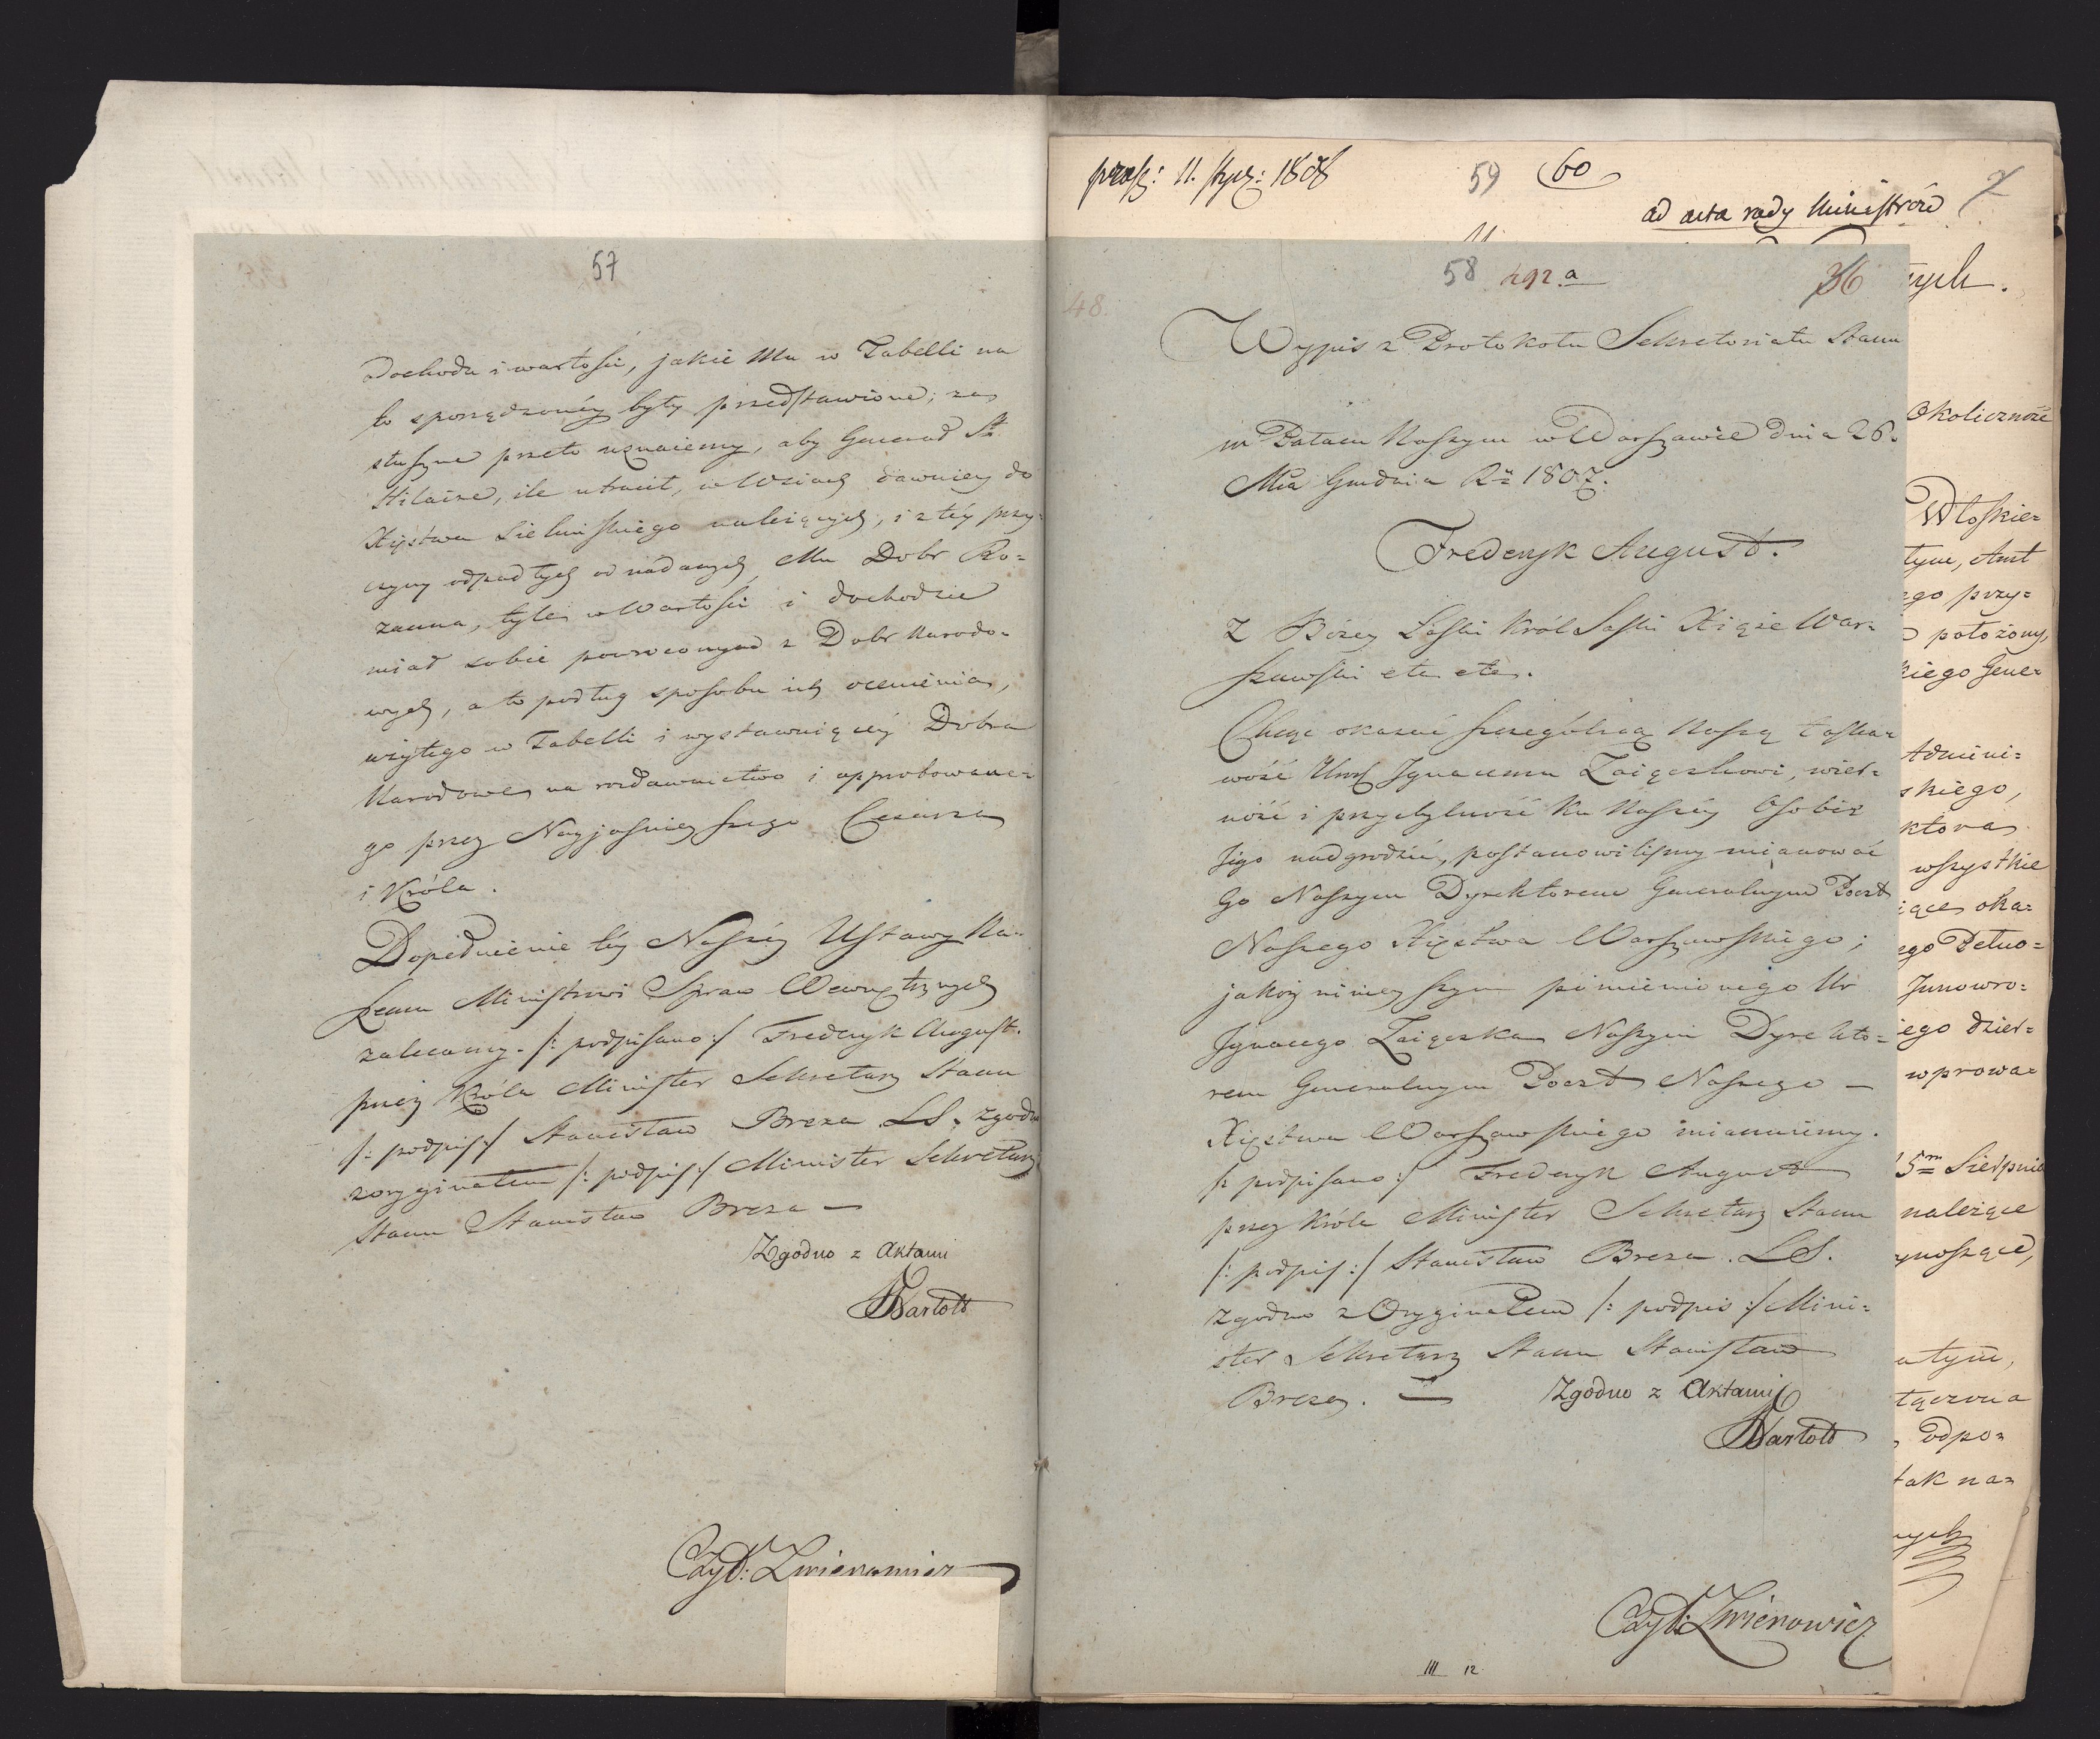 57
dochodu i wartości, jakie Mu w Tabelli na
to sporządzonéy były przedstawione; za
słuszne przeto uznaiemy, aby Generał St.
Hilaire, ile utracił, w Wsiach dawniey do
Xięstwa Siewierskiego należących, i z téy przy-
czyny odpadłych od nadanych Mu Dobr
zanna, tyle w Wartości i dochodzie
miał sobie powroconym z Dobr Narodo-
wych, a to podług sposobu ich ocenienia,
użytego w Tabelli i wystawuiącéy Dobra
Narodowe na rozdawnictwo i approbowane-
go przez Nayjaśnieyszego Cesarza
i Króla.
Dopełnienie téy Naszéy Ustawy Na-
szemu Ministrowi Spraw Wewnętrznych
zalecamy. /: podpisano :/ Frederyk August.
przez Króla Minister Sekretarz Stanu
/: podpis :/ Stanisław Breza LS. zgodno
z oryginałem /: podpis :/ Minister Sekretarz
Stanu Stanisław Breza —
Zgodno z Aktami
Czyt:
prasz: 11. stycz: 1808
59 60
ad acta rady Ministrów
7
58 292.a 36
48.
Wypis z Protokołu Sekretoriatu Stanu
w Pałacu Naszym w Warszawie dnia 26.
Mca Grudnia Ru 1807.
Frederyk August.
Z Bożey Łaski Król Saski Xiąże War-
szawski etc etc.
Chcąc okazać szczególną Naszą łaska-
wość Ur Ignacemu Zaiączkowi, wier-
ność i przychylność ku Naszéy Osobie
Jego nadgrodzić, postanowiliśmy mianować
Go Naszym Dyrektorem Generalnym Poczt
Naszego Xięstwa Warszawskiego;
jakoż ninieyszym pomienionego Ur
Ignacego Zaiączka Naszym Dyrekto-
rem Generalnym Poczt Naszego —
Xięstwa Warszawskiego mianuiemy.
/: podpisano :/ Frederyk August
przez Króla Minister Sekretarz Stanu
/: podpis :/ Stanisław Breza. LS.
Zgodno z Oryginałem /: podpis :/ Mini-
ster Sekretarz Stanu Stanisław
Breza. — Zgodno z Aktami
Czyt: Zmienowicz
III 12
ych.
Okoliczność
Włoskie-
tym, Amt
ego przy-
położony,
kiego Gene-
Admini-
skiego,
ktora
wszystkie
iące oka-
ego Pełno-
Junowro-
iego dzier-
wprowa-
15m Sierpnia
należące
ynoszące,
atym,
łączona
odpo-
tak na-
nych